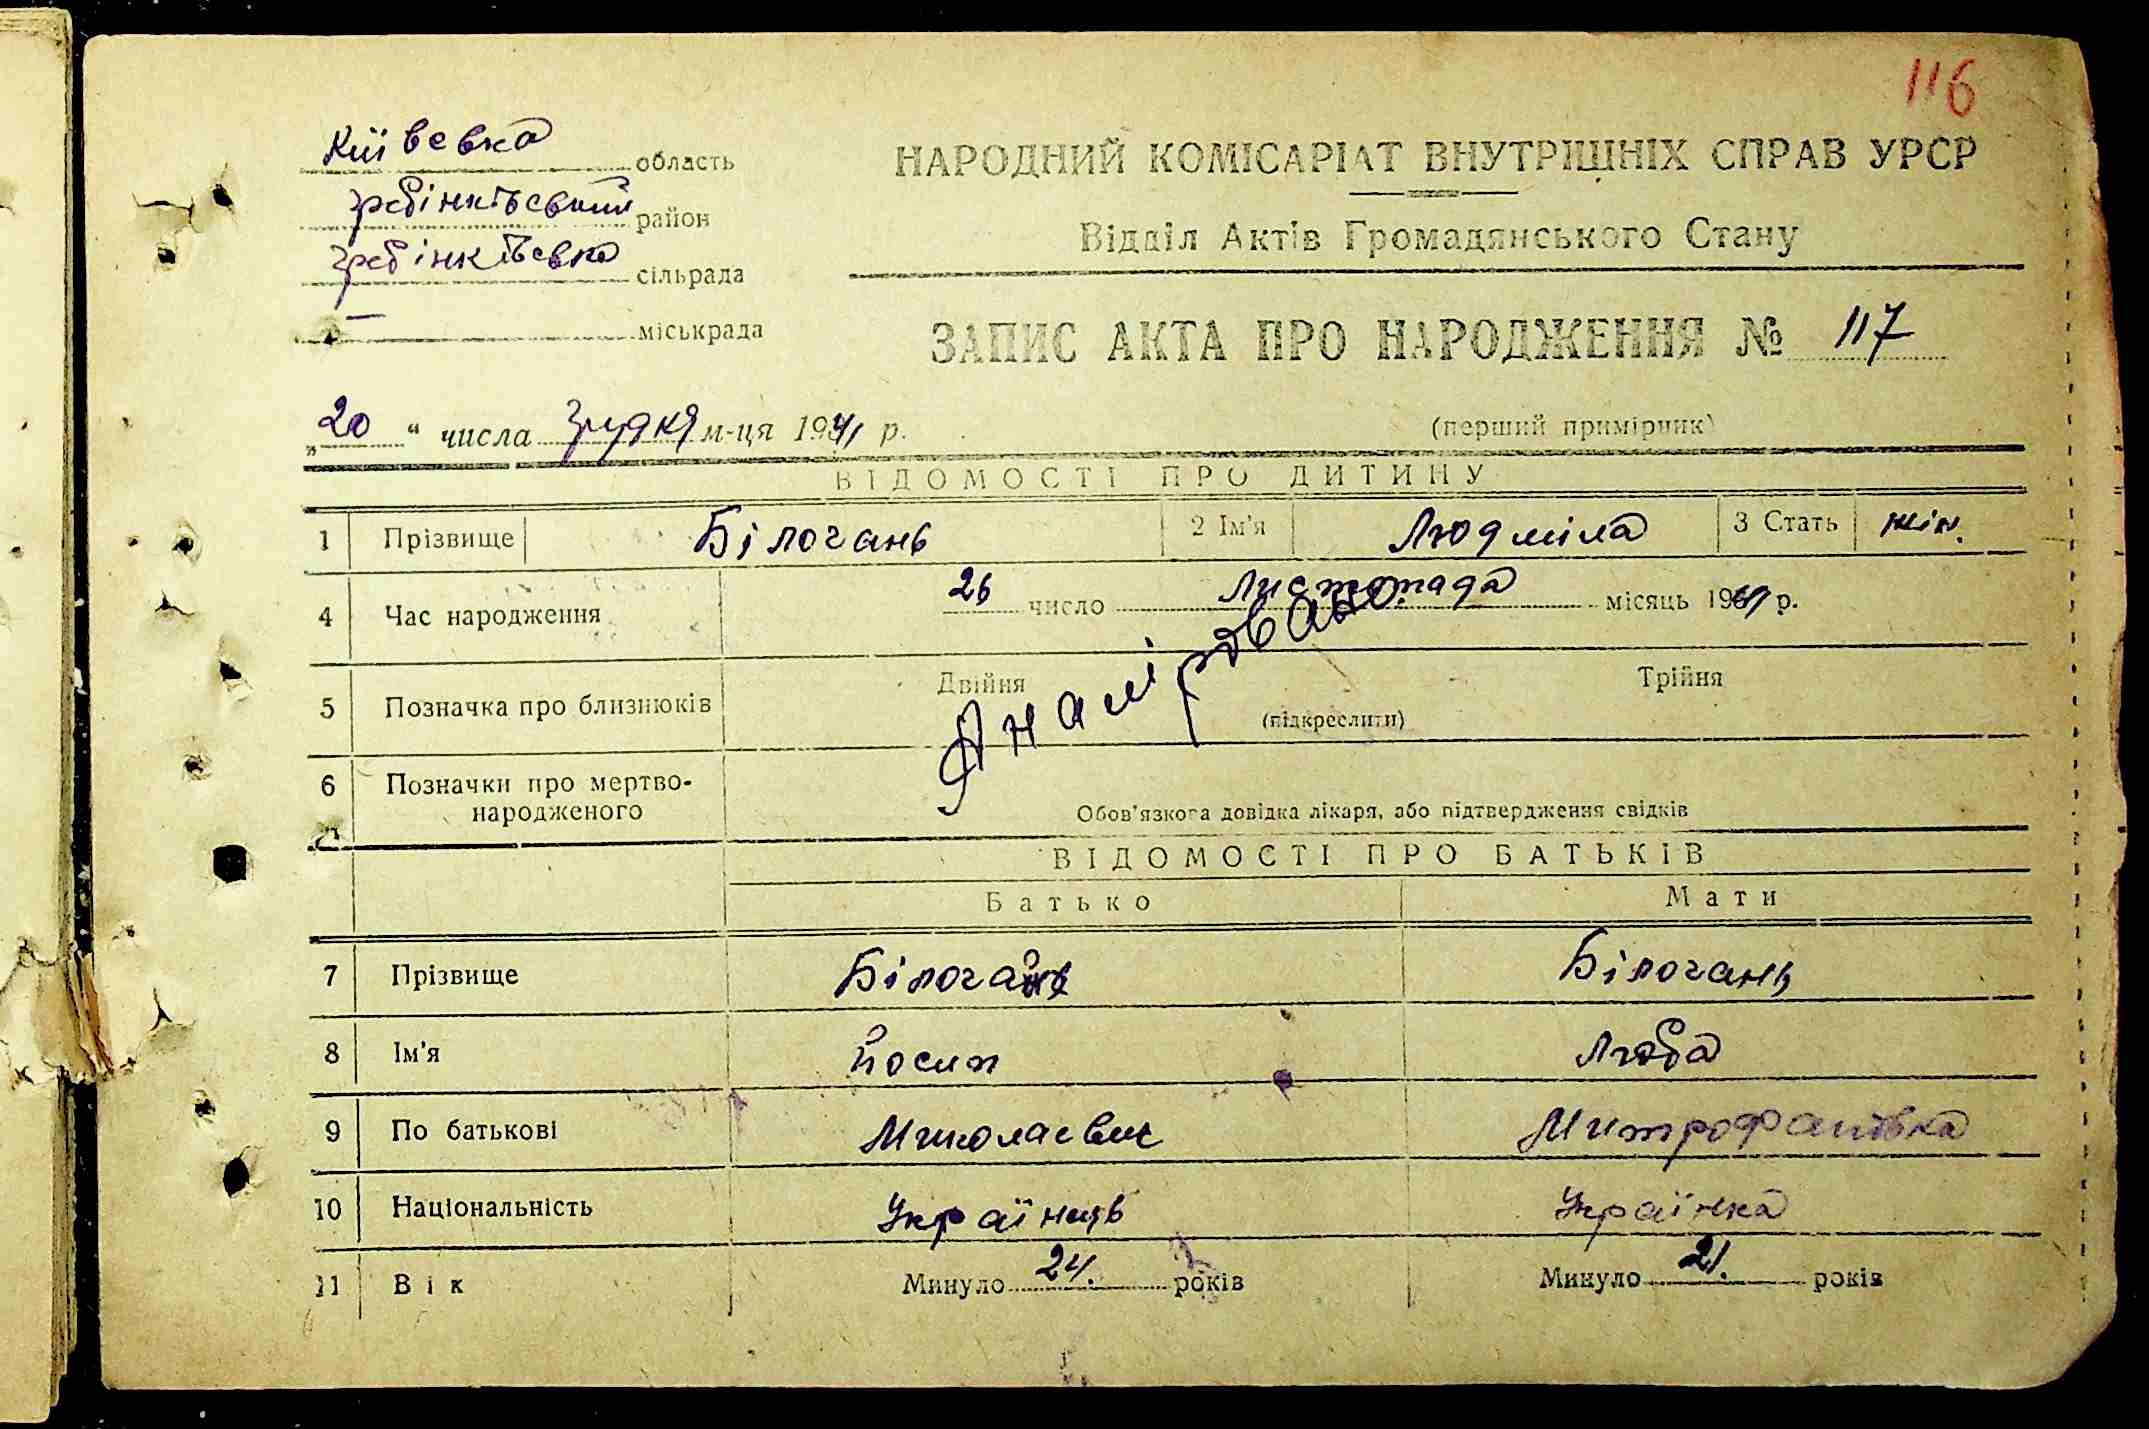 116
Київсвка область
гребінківсвкий район
гребінківсвка сільрада
— міськрада
НАРОДНИЙ КОМІСАРІАТ ВНУТРІШНІХ СПРАВ УРСР
Відділ Актів Громадянського Стану
ЗАПИС АКТА ПРО НАРОДЖЕННЯ № 117
„20“ числа грудня м-ця 1941 р.
(перший примірник)
ВІДОМОСТІ ПРО ДИТИНУ
1 Прізвище Білогань 2 Ім'я Людміла 3 Стать жін.
4 Час народження 26 число Листопада місяць 1941 р.
5 Позначка про близнюків Двійня (підкреслити) Трійня
6 Позначки про мертвонародженого Обов'язкова довідка лікаря, або підтвердження свідків
ВІДОМОСТІ ПРО БАТЬКІВ
Батько Мати
7 Прізвище Білогань Білогань
8 Ім'я Йосип Люба
9 По батькові Миколаевич Митрофанівка
10 Національність Українець Українка
11 Вік Минуло 24. років Минуло 21. років